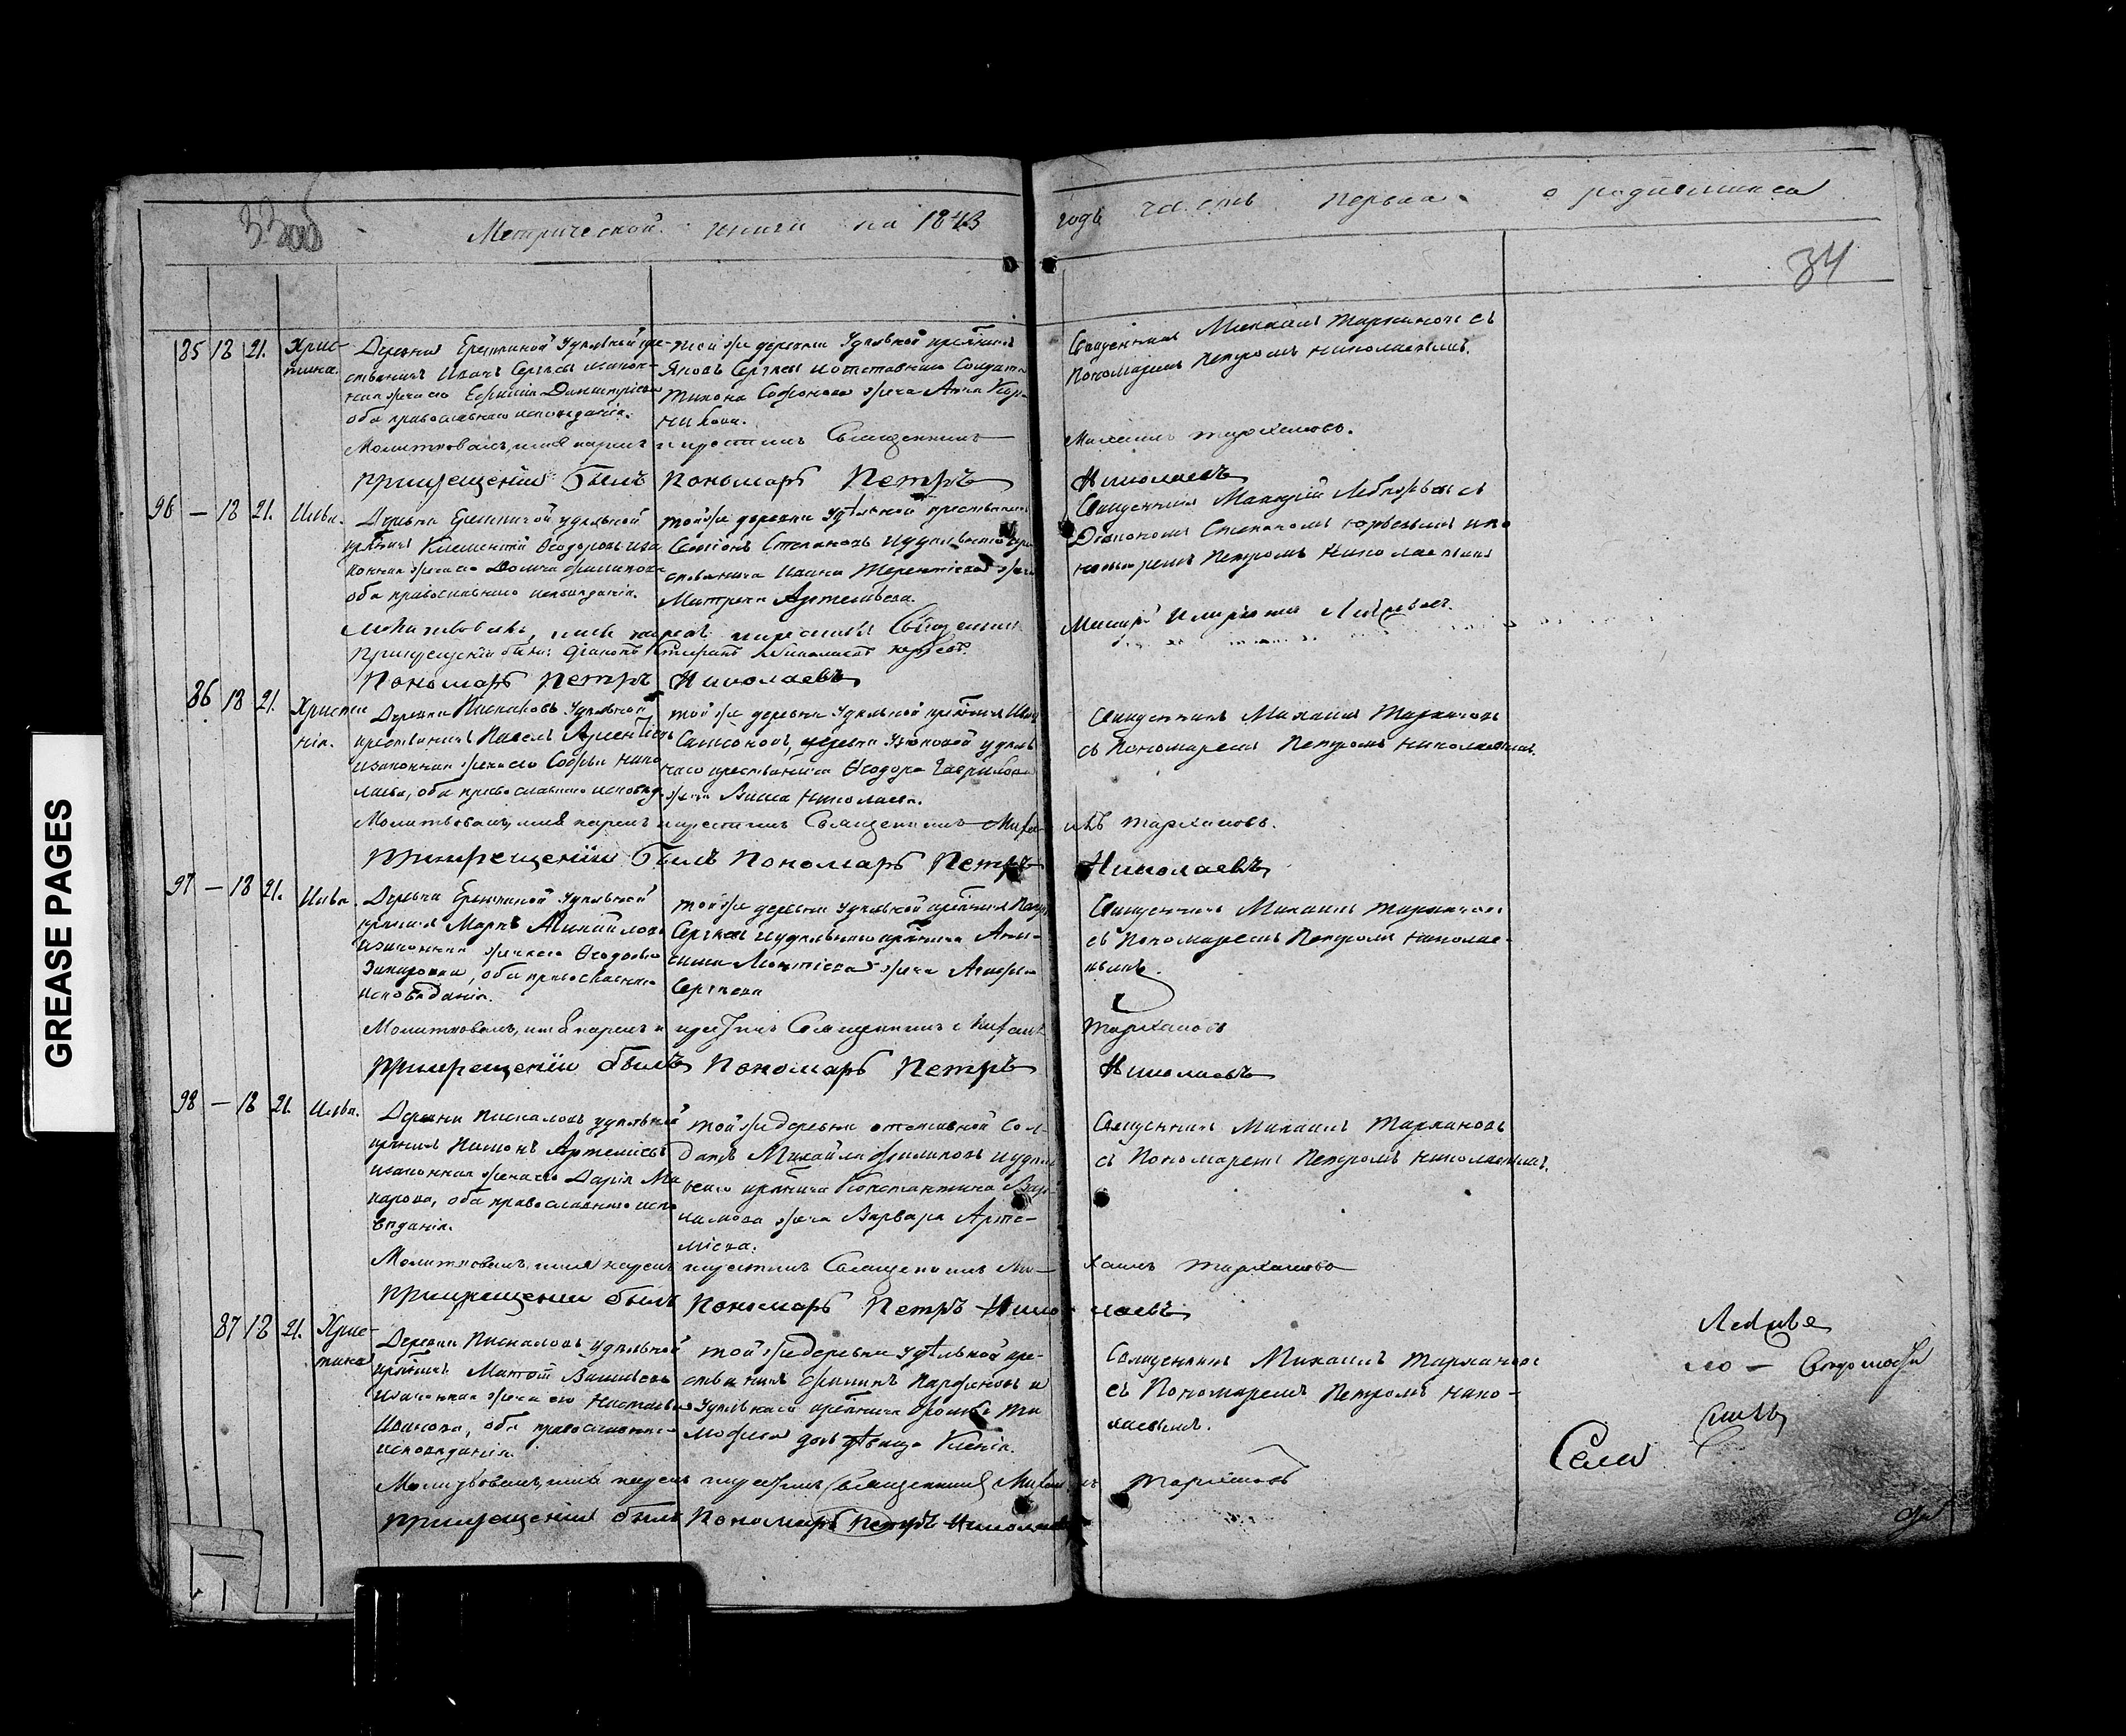 33 об
Метрической книги на 1843
годъ часть первая о родившихся
34
85 18 21. Хрис-
тина.
Деревни Еремкиной Удѣльной кре-
стьянинъ Иванъ Сергѣевъ изакон-
ная жена его Ефимія Димитріева
оба православнаго исповѣданія.
той же деревни Удѣльной крестьянинъ
Яковъ Сергѣевъ иотставнаго Солдата
Тихона Софонова жена Анна Кор-
нилова.
Священникъ Михаилъ Тарханов съ
Пономаремъ Петромъ Николаевымъ.
Молитвовалъ, имя нарекъ и крестилъ Священникъ
Михаилъ Тархановъ.
При крещеніи былъ Пономарь Петръ
Николаевъ
96 — 18 21. Илья.
Деревни Еремкиной удѣльной
крестьянинъ Климентій Ѳеодоровъ иза
конная жена его Домна Филипова
оба православнаго исповѣданія.
той же деревни Удѣльной крестьянинъ
Семіонъ Степановъ иудѣльнаго кре
стьянина Ивана Терентіева жена
Матрена Артемьева.
Священникъ
Діакономъ Степаномъ Юрьевымъ ипо
номаремъ Петромъ Николаевымъ
Молитвовалъ, имя нарекъ икрестилъ Священник
При крещеніи были: Діаконъ Стефанъ Юрьевъ.
Пономарь Петръ Николаевъ
86 18 21. Христи
нія.
Деревни Пискаловъ Удѣльной
крестьянинъ Павелъ Арсентіевъ
изаконная жена его Софья Нико
лаева, оба православнаго исповѣд.
той же деревни Удѣльной крестьянинъ Иванъ
Самсоновъ, деревни Узюковой удѣль
наго крестьянина Ѳеодора Гаврилова
жена Васса Николаева.
Священникъ Михаилъ Тархановъ
съ Пономаремъ Петромъ Николаевымъ.
Молитвовалъ, имя нарекъ икрестилъ Священникъ Миха-
илъ Тархановъ.
При крещеніи былъ Пономарь Петръ
Николаевъ
97 — 18 21. Илья.
Деревни Еремкиной Удѣльной
крестьянинъ Маркъ Михайловъ
изаконная жена его Ѳеодосья
оба православнаго
исповѣданія.
той же деревни Удѣльной крестьянинъ Петръ
Сергѣевъ иудѣльнаго крестьянина Ани-
сима жена Агафья
Сергѣева
Священникъ Михаилъ Тархановъ
съ Пономаремъ Петромъ Николае-
вымъ.
Молитвовалъ, имя нарекъ и крестилъ Священникъ Михаилъ
Тархановъ
При крещеніи былъ Пономарь Петръ
Николаевъ
98 — 18 21. Илья.
Деревни Пискаловъ удѣльной
крестьянинъ Артемьевъ
изаконная жена его Дарія Ма
карова, оба православнаго испо
вѣданія.
той же деревни отставной Сол-
датъ Михайла Филиповъ иудѣль
наго крестьянина Константина Вар-
ламова жена Варвара Арте-
міева.
Священникъ Михаилъ Тархановъ
съ Пономаремъ Петромъ Николаевымъ.
Молитвовалъ, имя нарекъ икрестилъ Священникъ Ми-
хаилъ Тархановъ
При крещеніи былъ Пономарь Петръ Нико-
лаевъ
87 18 21. Хрис-
тина
Деревни Пискаловъ Удѣльной
крестьянинъ Матѳій Васильевъ
изаконная жена его Настасья
Иванова, оба православнаго
исповѣданія.
той же деревни Удѣльной кре-
стьянинъ Филипъ Парфеновъ и
Удѣльнаго крестьянина Ти
мофеева дочь дѣвица Ксенія.
Священникъ Михаилъ Тархановъ
съ Пономаремъ Петромъ Нико-
лаевымъ.
Молитвовалъ, имя нарекъ икрестилъ Священникъ Михаилъ
Тархановъ
При крещеніи былъ Пономарь Петръ Николаевъ
Села
GREASE PAGES